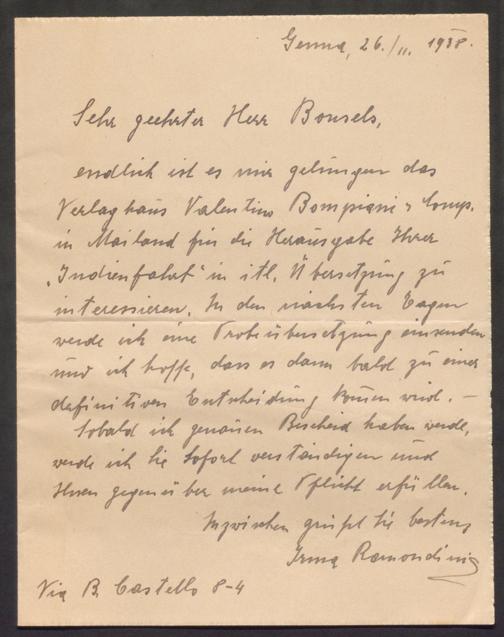 Genua, 26./II. 1938.
Sehr geehrter Herr Bonsels,
endlich ist es mir gelungen das
Verlaghaus Valentino Bompiani & Comp.
in Mailand für die Herausgabe Ihrer
„Indienfahrt" in itl. Übersetzung zu
interessieren. In den nächsten Tagen
werde ich eine Probeübersetzung einsenden
und ich hoffe, dass es dann bald zu einer
definitiven Entscheidung kommen wird. –
Sobald ich genauen Bescheid haben werde,
werde ich Sie sofort verständigen und
Ihnen gegenüber meine Pflicht erfüllen.
Inzwischen grüßt Sie bestens
Irma Ramondini
Via B. Castello 8-4